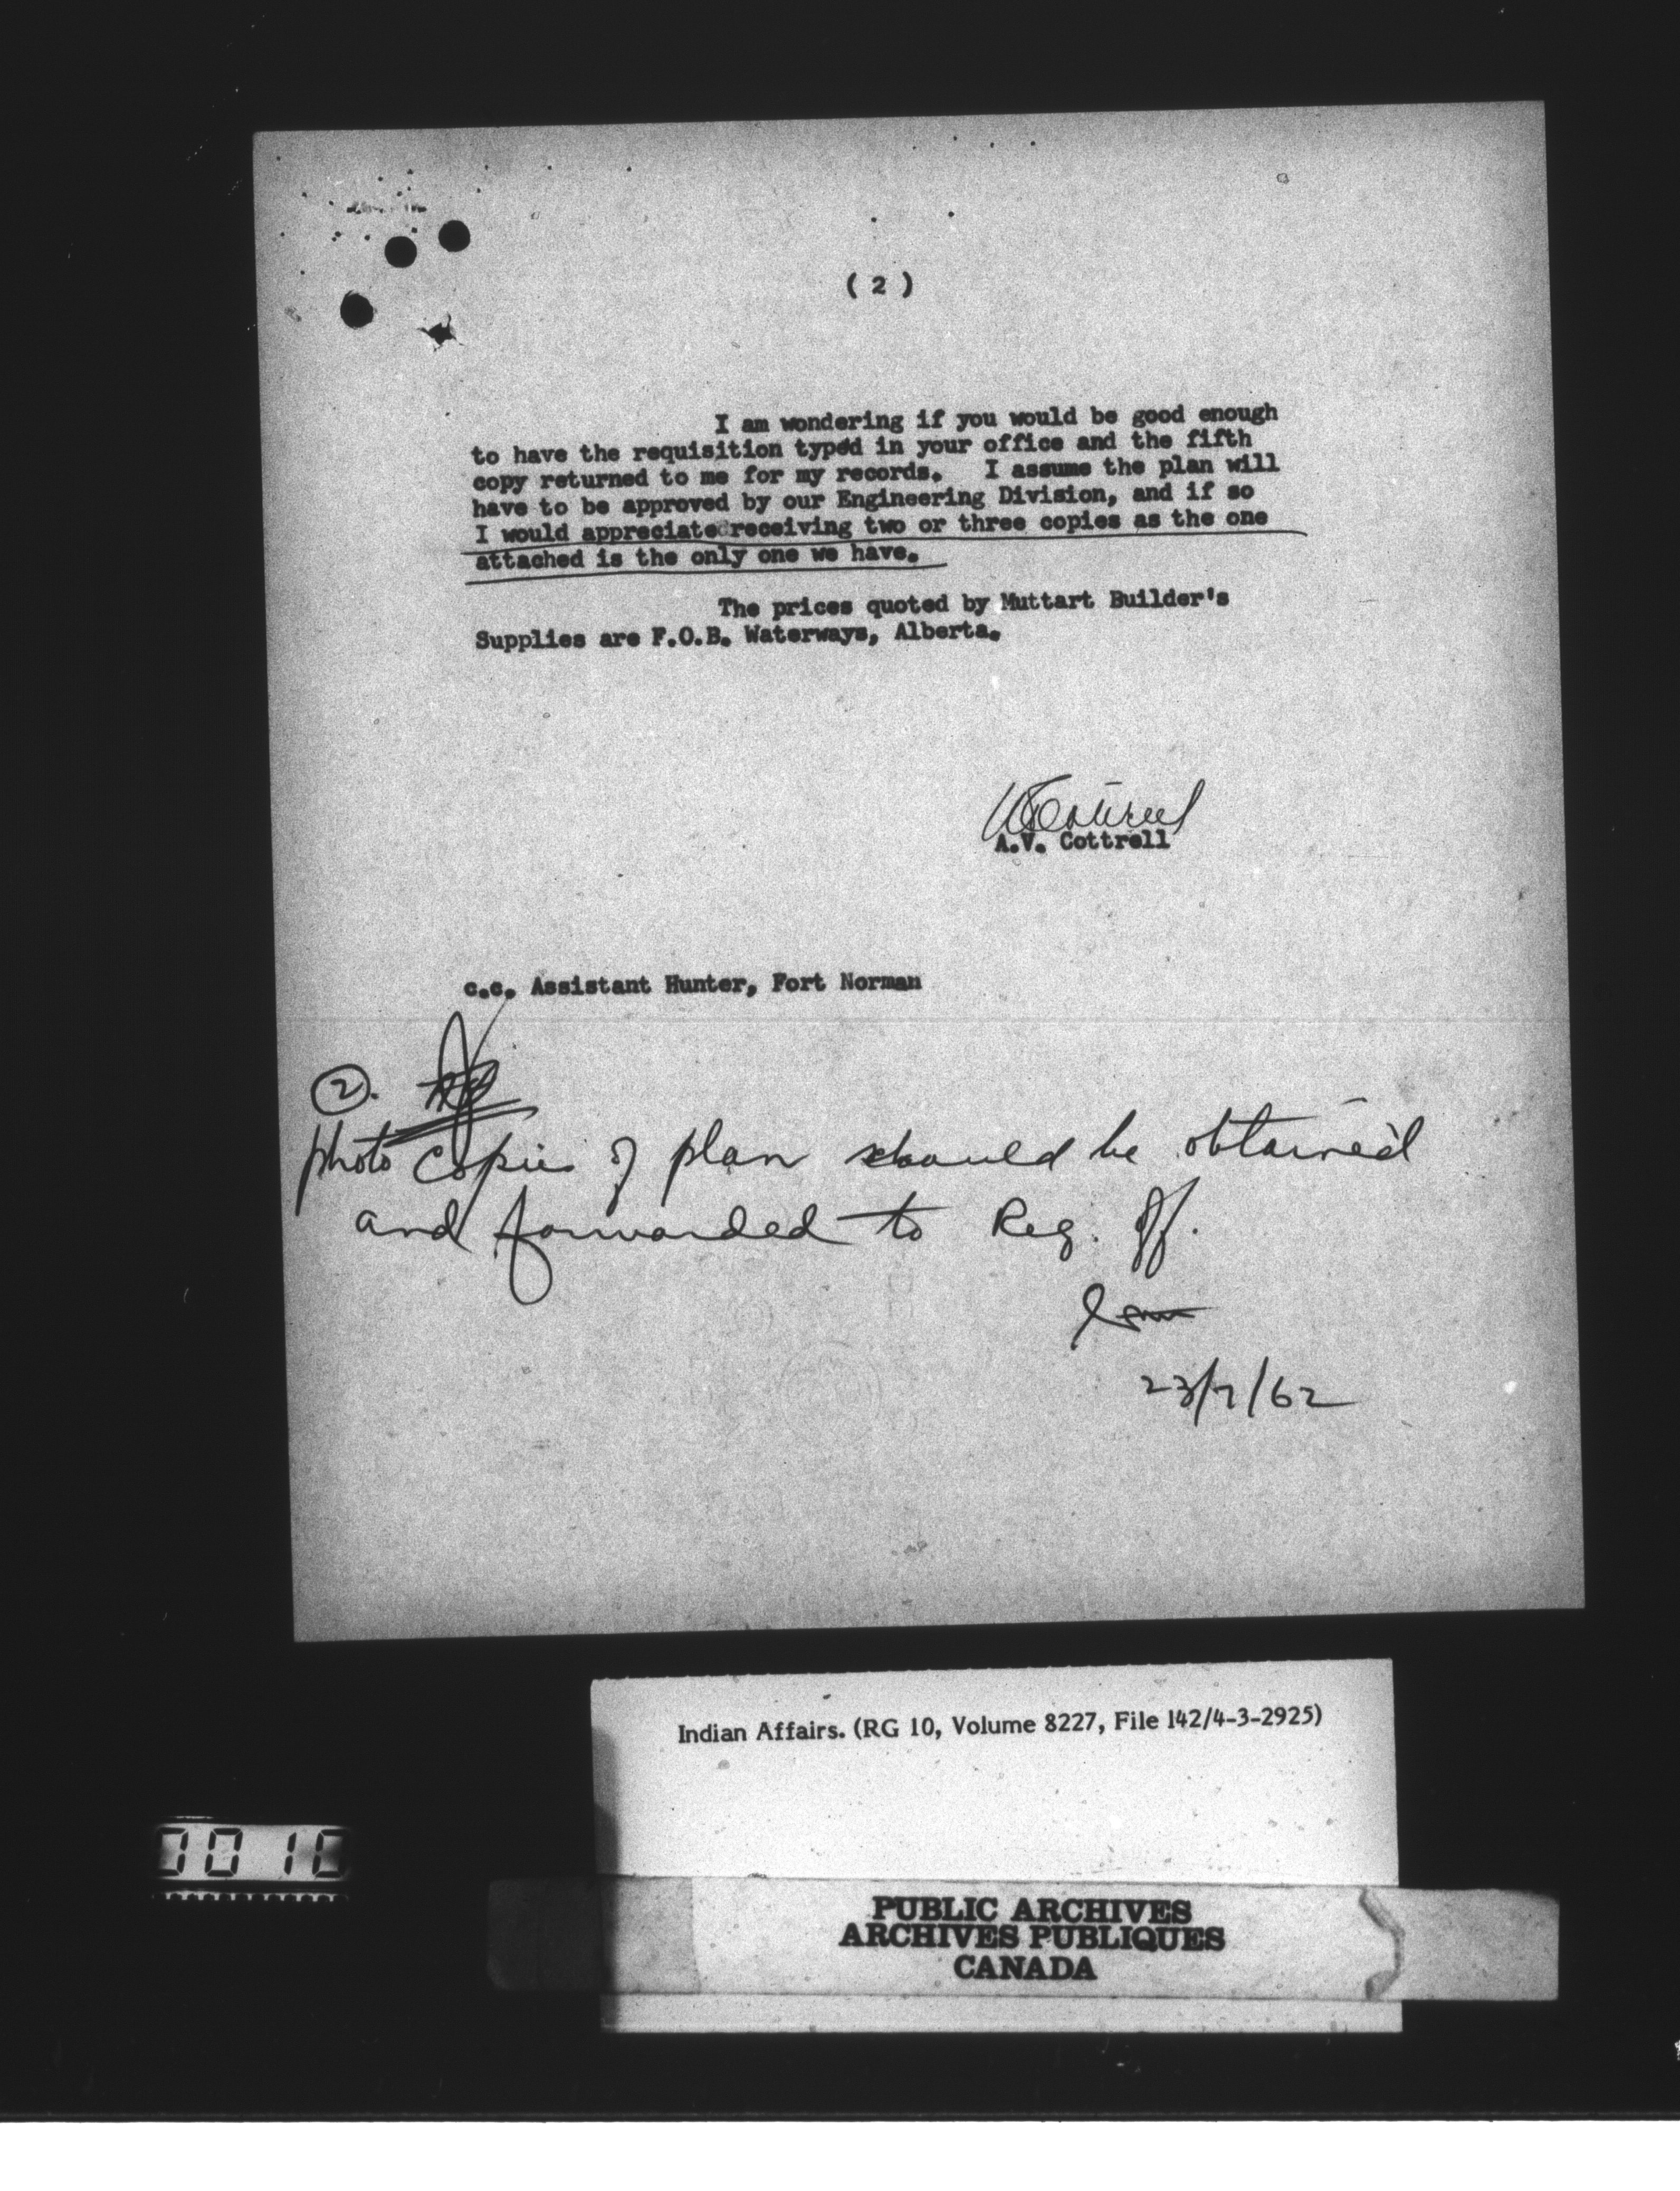 ( 2 )
I am wondering if you would be good enough
to have the requisition typed in your office and the fifth
copy returned to me for my records. I assume the plan will
have to be approved by our Engineering Division, and if so
I would appreciate receiving two or three copies as the one
attached is the only one we have.
The prices quoted by Muttart Builder's
Supplies are F.O.B. Waterways, Alberta.
A.V. Cottrell
c.c. Assistant Hunter, Fort Norman
2.
photo copies of plan should be obtained
and forwarded to Reg. Off.
23/7/62
Indian Affairs. (RG 10, Volume 8227, File 142/4-3-2925)
0010
PUBLIC ARCHIVES
ARCHIVES PUBLIQUES
CANADA